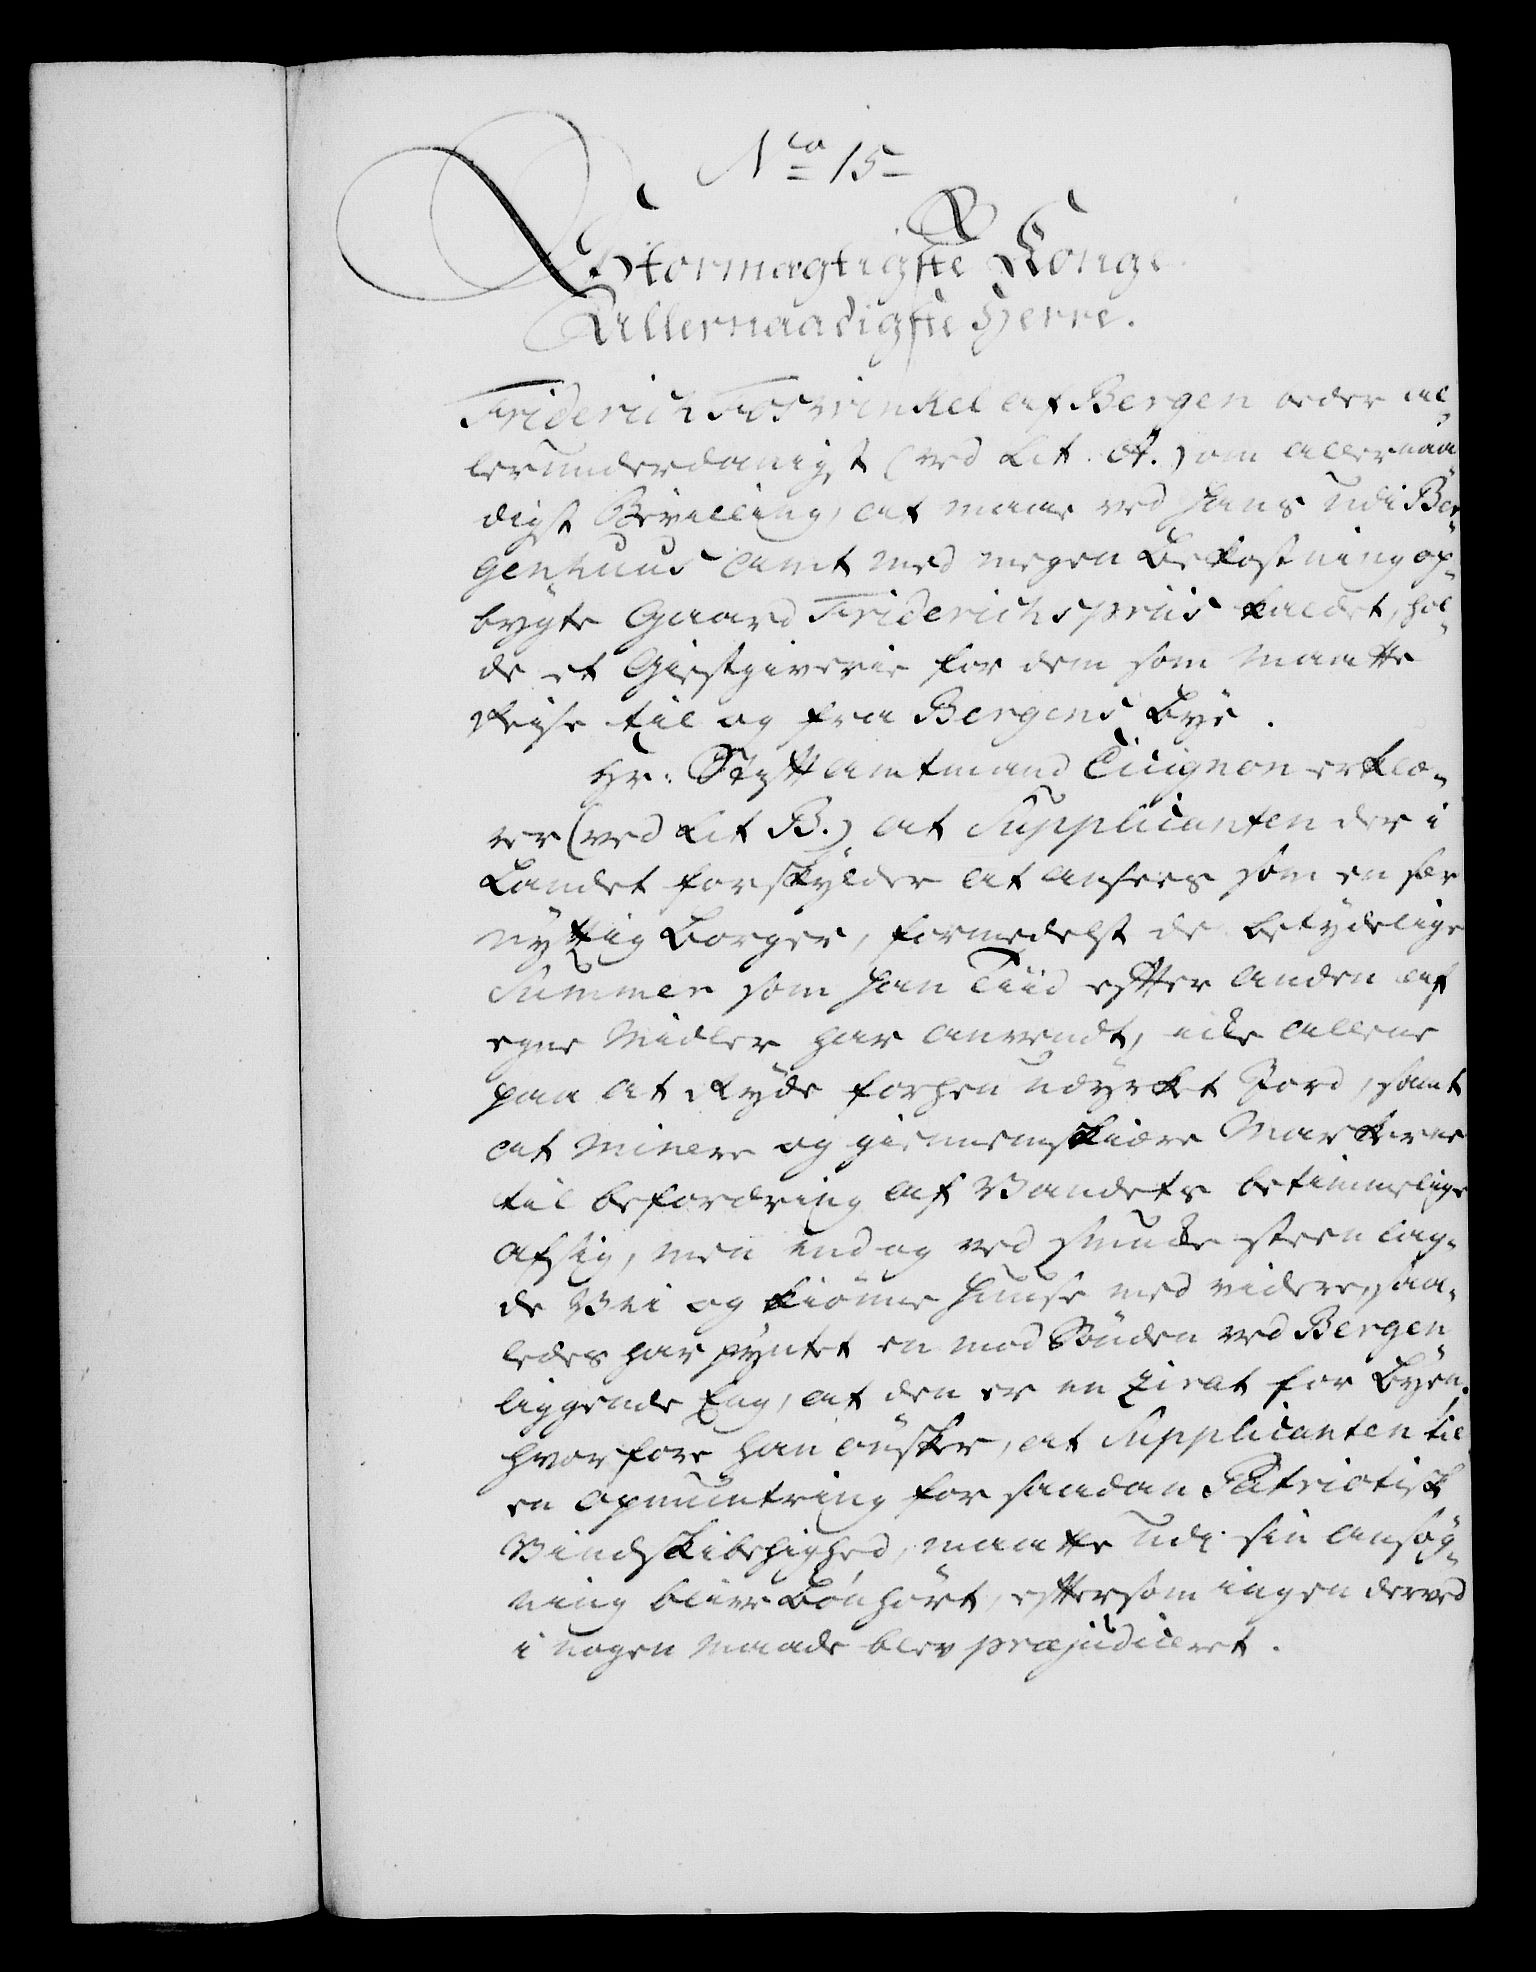 Nco 15
Stormægtigste Konge
Allernaadigste Herre.
Friderich Foswinkel af Bergen beder al-
lerunderdanigst (ved Lit. A.) om allernaa-
digst Bevilling, at maae ved hans udi Ber-
genhuus Amt med megen Bekostning op-
bygte Gaard Friderichspriis kaldet, hol-
de et Giestgiverie for dem som maatte
Reise til og fra Bergens Bye.
Hr. Stiftamtmand Cicignon erklæ-
rer (ved Lit B.) at Supplicanten der i
Landet forskylder at ansees som en sær
nyttig Borger, formedelst de betydelige
Summer som han Tiid efter anden af
egne Midler har anvendt, icke allene
paa at Ryde forhen udyrket Jord, samt
at Minere og giennemskiære Markerne
til befordring af Vandets betimmelige
afsig, men endog ved smucke steenlag-
de Vei og kiønne Huuse med videre, saa-
ledes har pyntet en mod Sönden ved Bergen
liggende Eng, at den er en Zirat for Byen.
hvorfore han önsker, at Supplicanten til
en opmuntring for saadan Patriotisk
Vindskibelighed, maatte udi sin ansøg-
ning blive Bönhört, eftersom ingen derved
i nogen Maade blev præjudiceret.